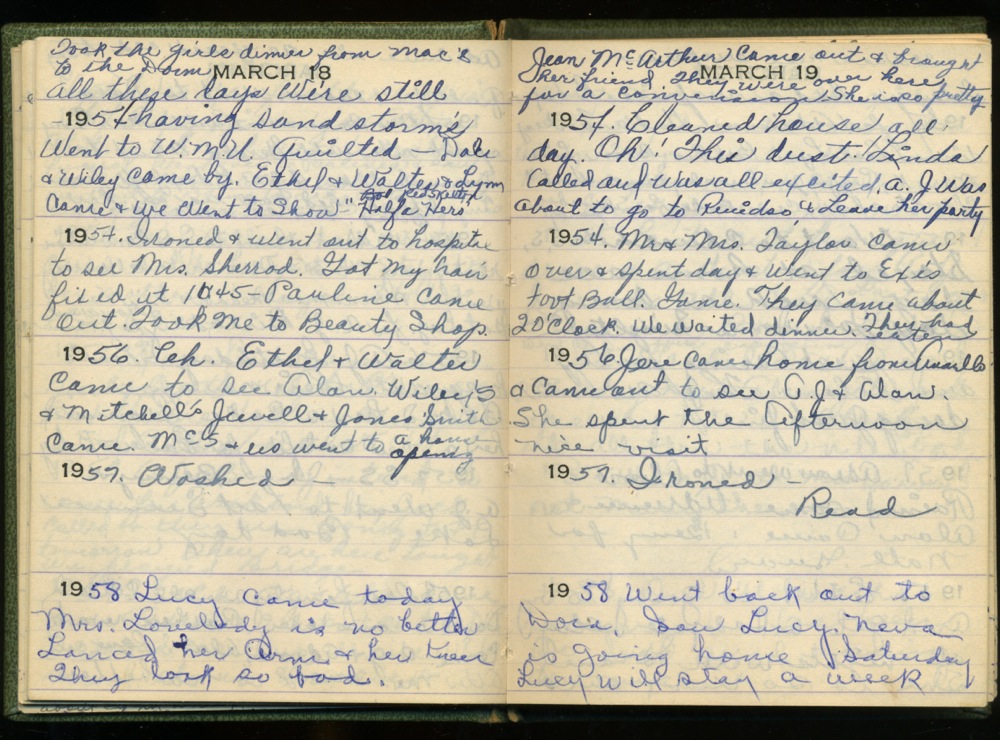 Took the girls dinner from Mac's
to the Dorm
MARCH 18
all these days were still
1954 having sand storms
Went to W.M.U. Quilted - Dale
& Wiley came by. Ethel & Walter & Lynn
Came & we went to Show "Half a Hero"
Red Skelton
1954. Ironed & went out to hospital
to see Mrs. Sherrod. Got my hair
fixed at 1045 - Pauline came
out. Took me to Beauty Shop.
1956. Ch. Ethel & Walter
Came to see Alan. Wiley's
& Mitchell's Jewell & Jones Smith
Came. McS & us went to a house
opening
1957. Washed -
1958 Lucy came today
Mrs. Lovelady is no better
Lanced her Arm & her Knee
They look so bad.
Jean McArthur came out & brought
her friend They were over here
MARCH 19
for a convention She is so pretty
1954. Cleaned house all
day. Oh! This dust. Linda
Called and was all excited, A.J. Was
about to go to Ruidso & Leave her party
1954. Mr & Mrs. Taylor came
over & spent day & went to Ex's
Foot Ball. Game. They came about
2 O'Clock. We waited dinner. They had
eaten
1956 Jere came home from
& came out to see A.J & Alan.
She spent the Afternoon
nice visit
1957. Ironed -
Read
1958 Went back out to
Dora. Saw Lucy. Neva
is going home Saturday
Lucy will stay a week